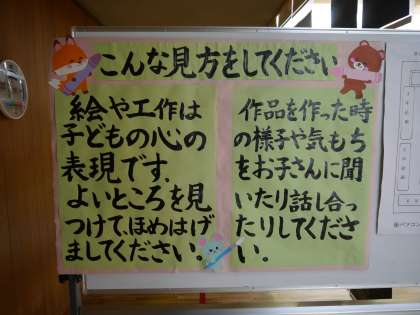 こんな見方をしてください
絵や工作は
子どもの心の
表現です.
よいところを見
つけて、ほめはげ
ましてください。
作品を作った時
の様子や気もち
をお子さんに聞
いたり話し合っ
たりしてくださ
い.